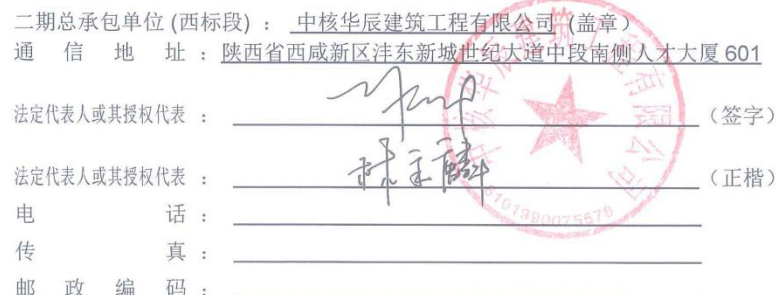 二期总承包单位 (西标段) : 中核华辰建筑工程有限公司 (盖章)
通信地址 : 陕西省西咸新区沣东新城世纪大道中段南侧人才大厦 601
法定代表人或其授权代表 : (签字)
法定代表人或其授权代表 : (正楷)
电话 :
传真 :
邮政编码 :
中核华辰建筑工程有限公司
6101990075576